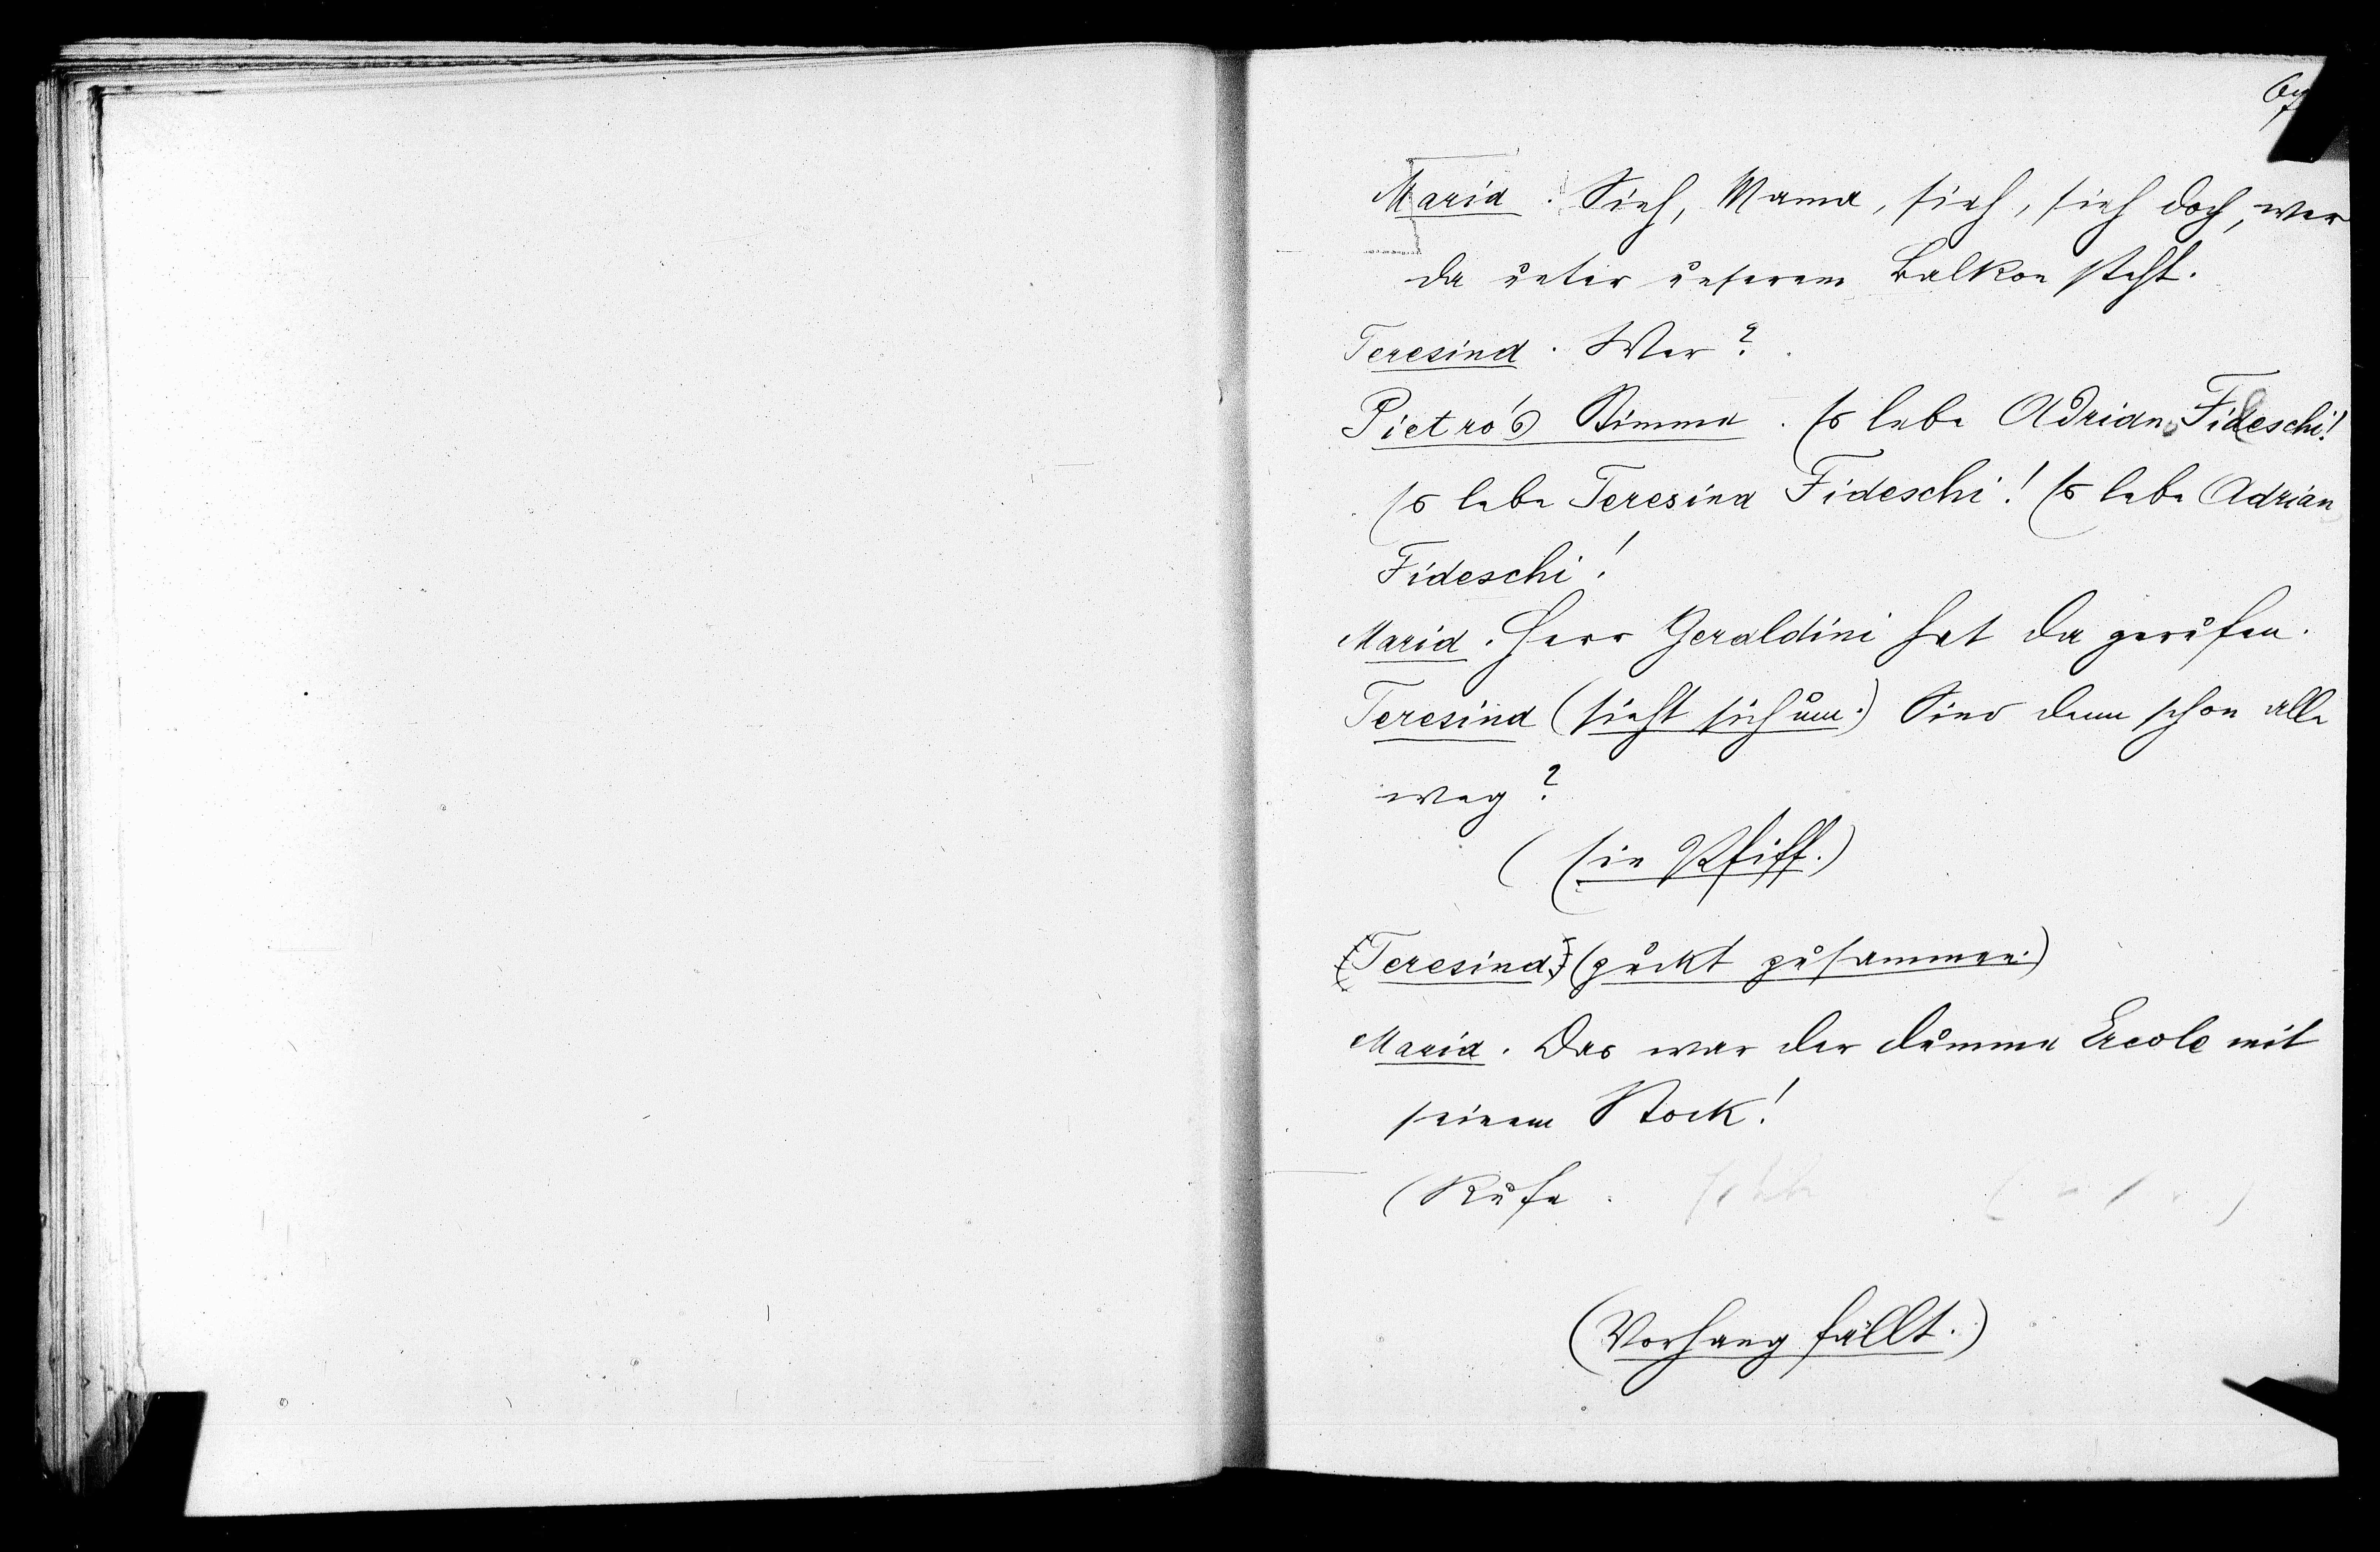 Maria. Sieh, Mama, sieh, sieh doch, wer
da unter unserem Balkon steht.
Teresina. Wer?
Pietro's Stimme. Es lebe Adrian Fideschi!
Es lebe Teresina Fideschi! Es lebe Adrian
Fideschi!
Maria. Herr Geraldini hat da gerufen.
Teresina (sieht sich um.) Sind denn schon alle
weg?
(Ein Pfiff.)
(Teresina) (zuckt zusammen.)
Maria. Das war der dumme Ercole mit
seinem Stock!
(Rufe.
(Vorhang fällt.)